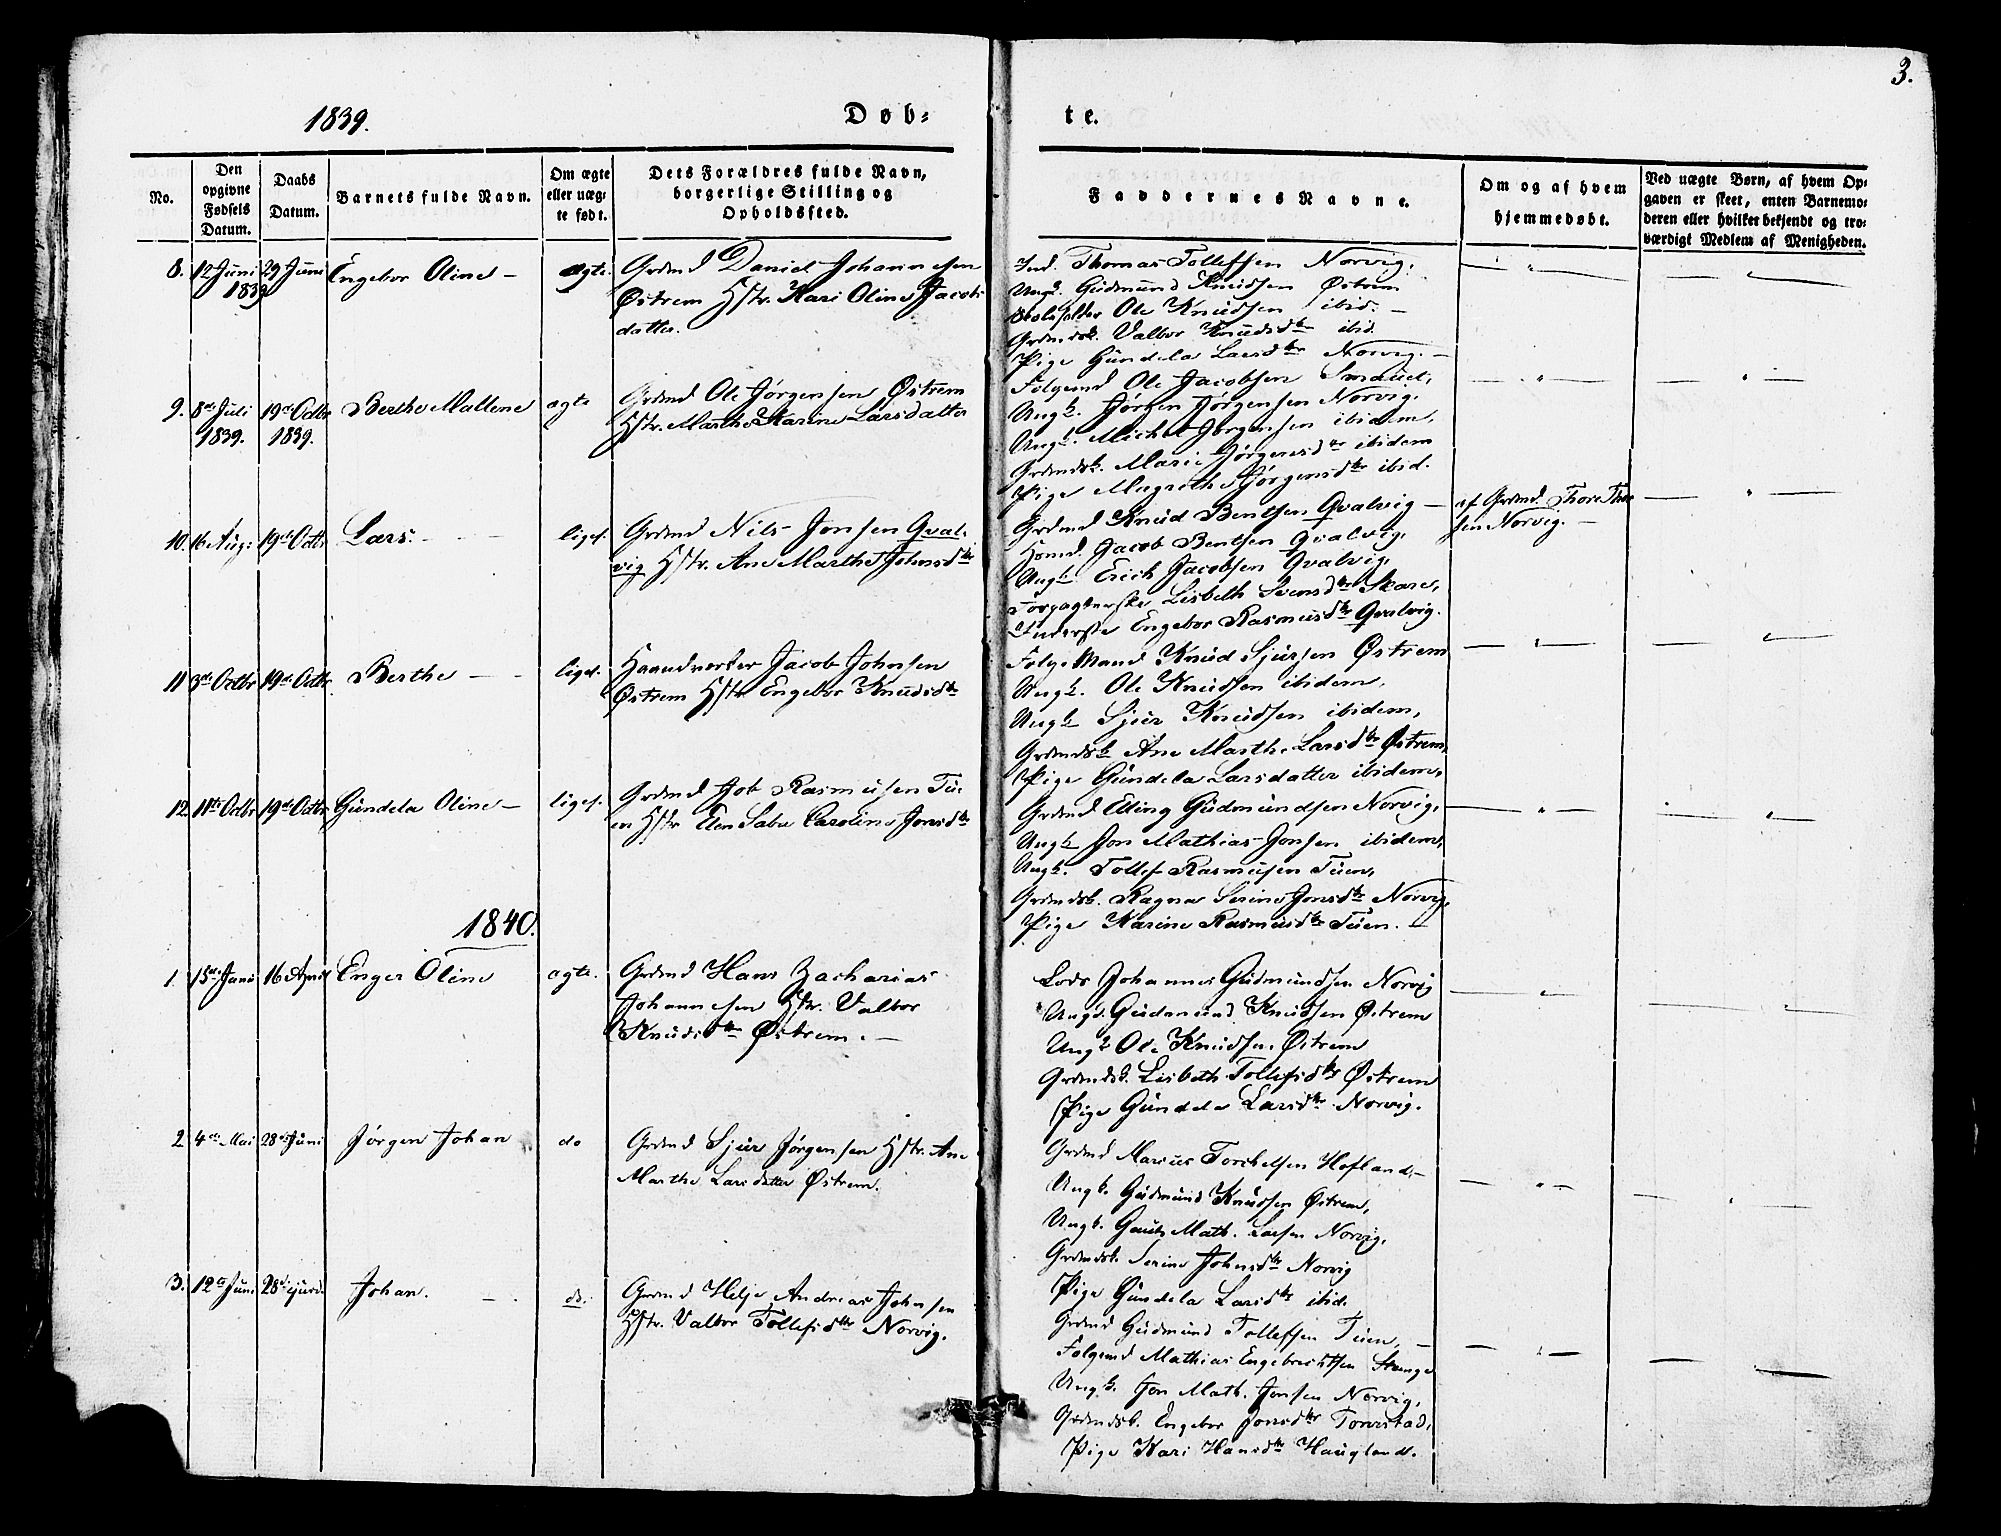 3.
1839.
Døb-
te.
No.
Den opgivne Fødsels Datum.
Daabs Datum.
Barnets fulde Navn.
Om ægte eller uægte født.
Dets Forældres fulde Navn, borgerlige Stilling og Opholdssted.
Faddernes Navne.
Om og af hvem hjemmedøbt.
Ved uægte Børn, af hvem Opgaven er skeet, enten Barnemoderen eller hvilket bekjendt og troværdigt Medlem af Menigheden.
8. 12 Juni 1839 29 Juni Engebor Oline ægte. Grdmd Daniel Johannesen
Østrem Hstr. Kari Oline Jacobs
datter.
Ind. Thomas Tollefsen Norvig.
Ungk. Gudmund Knudsen Østrem
Ole Knudsen ibid.
Grdmdsk. Valbor Knudsdtr ibid
Pige Gundela Larsdtr Norvig.
9. 8de Juli 1839. 19de Octbr 1839. Berthe Mallene ægte Grdmd Ole Jørgensen Østrem
Hstr. Marthe Karine Larsdatter
Følgemd Ole Jacobsen
Ungk. Jørgen Jørgensen Norvig.
Ungk. Michel Jørgensen ibidem,
Grdmdsk. Marie Jørgensdtr ibidem
Pige Magrethe Jørgensdtr ibid.
10. 16 Aug: 19de Octbr Lars. liges. Grdmd Nils Jonsen Qval-
vig Hstr. Ane Marthe Johnsdtr
Grdmd Knud Bentsen Qvalvig
Jacob Bentsen Qvalvig.
Ungk. Erich Jacobsen Qvalvig,
Forpagterske Lisbeth Svensdtr Skare,
Inderste Engebor Rasmusdtr Qvalvig.
af Grdmd. Thore Thor
sen Norvig.
11 3de Octbr 19de Octbr Berthe liges. Haandverker Jacob Johnsen
Østrem Hstr Engebor Knudsdtr
Følge Mand Knud Sjursen Østrem
Ungk. Ole Knudsen ibidem.
Ungk Sjur Knudsen ibidem,
Grdmdsk Ane Marthe Larsdtr Østrem,
Pige Gundela Larsdatter ibidem,
12. 11te Octbr 19de Octbr Gundela Oline liges. Grdmd Job Rasmusen Tu-
en Hstr Elen Saba Caroline Jonsdtr
Grdmd Elling Gudmundsen Norvig,
Ungk Jon Mathias Jonsen ibidem,
Ungk. Tollef Rasmusen Tuen,
Grdmdsk. Ragna Serine Jonsdtr Norvig,
Pige Karine Rasmusdtr Tuen.
1840.
1 15de Janu 16 April Enger Oline ægte. Grdmd Hans Zacharias
Johannesen Hstr. Valbor
Knudsdtr Østrem.
Lods Johannes Gudmundsen Norvig
Ungk. Gudmund Knudsen Østrem
Ungk Ole Knudsen Østrem
Grdmdsk. Lisbeth Tollefsdtr Østrem
Pige Gundela Larsdtr Norvig.
2 4de Mai 28de Juni Jørgen Johan do Grdmd Sjur Jørgensen Hstr. Ane
Marthe Larsdatter Østrem.
Grdmd Marcus Torchelsen Hofland,
Ungk. Gudmund Knudsen Østrem,
Ungk. Gautz Math. Larsen Norvig,
Grdmdsk. Serine Johnsdtr Norvig
Pige Gundela Larsdtr ibid.
3. 12te Juni 28de Johan. do. Grdmd Helje Andreas Johnsen
Hstr. Valbor Tollefsdtr Norvig.
Grdmd Gudmund Tollefsen Tuen,
Følgemd Mathias Engebrechtsen Stange
Ungk. Jon Math. Jonsen Norvig,
Grdmdsk. Engebor Jonsdtr Torvestad,
Pige Kari Hansdtr Haugland.